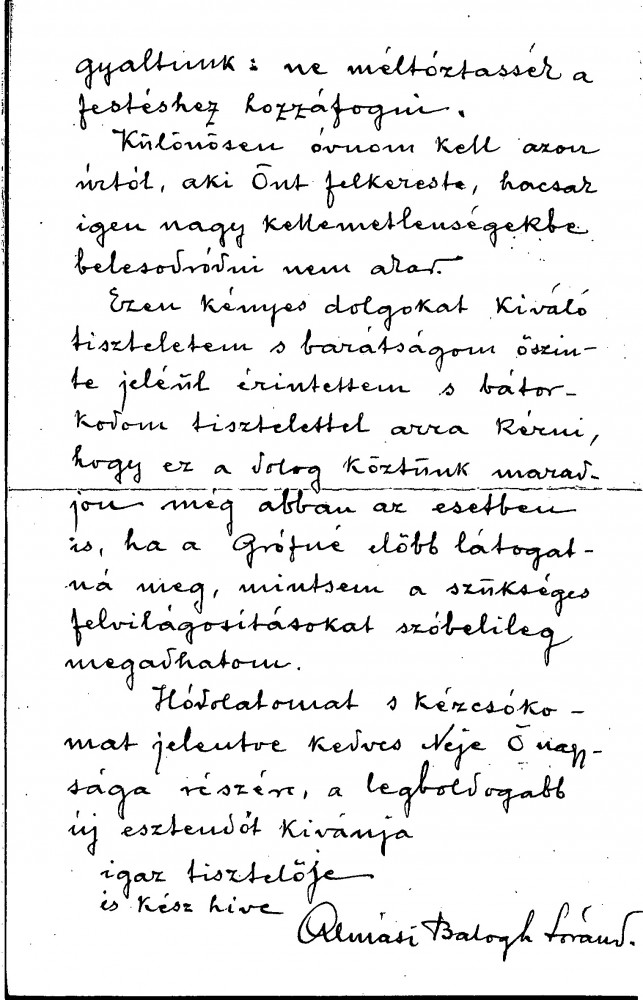 gyaltunk: ne méltóztassék a
festéshez hozzáfogni.
Különösen óvnom kell azon
úrtól, aki Önt felkereste, hacsak
igen nagy kellemetlenségekbe
belesodródni nem akar.
Ezen kényes dolgokat kiváló
tiszteletem s barátságom őszin-
te jeléül érintettem s bátor-
kodom tisztelettel arra kérni,
hogy ez a dolog köztünk marad-
jon még abban az esetben
is, ha a Grófné előbb látogat-
ná meg, mintsem a szükséges
felvilágosításokat szóbelileg
megadhatom.
Hódolatomat s kézcsóko-
mat jelentve kedves Neje Ő nagy-
sága részére, a legboldogabb
új esztendőt kivánja
igaz tisztelője
is kész hive
Almási Balogh Loránd.